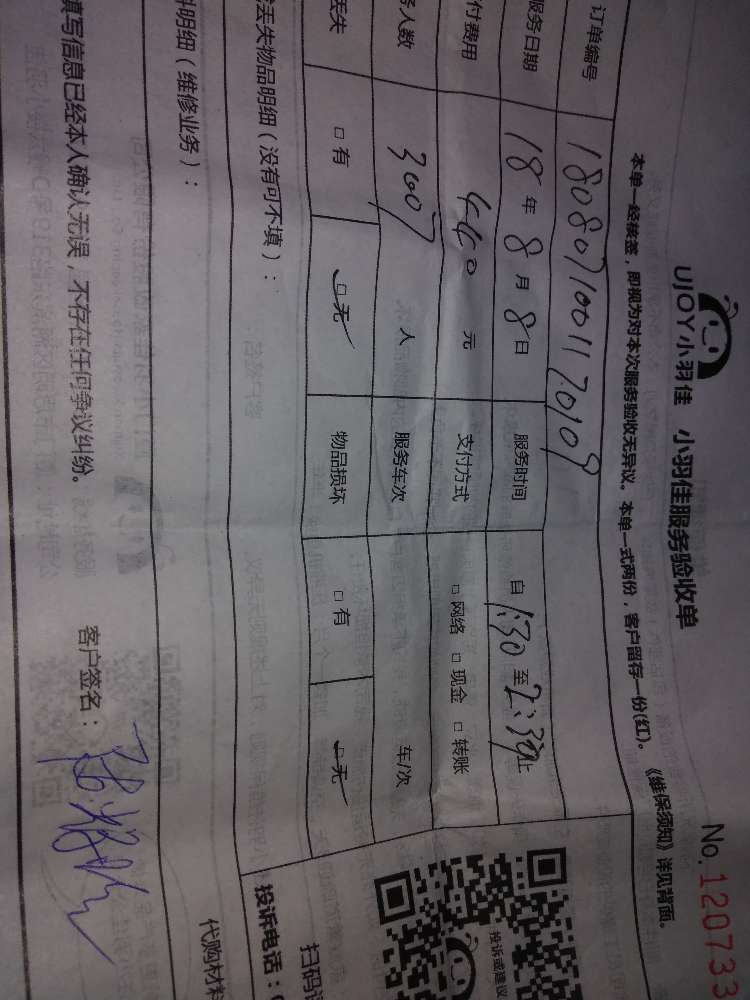 UJOY小羽佳 小羽佳服务验收单
No.120733
本单一经核签，即视为对本次服务验收无异议。本单一式两份，客户留存一份(红)。《维保须知》详见背面。
订单编号 1808071001170109
服务日期 18年8月8日 服务时间 自1:30至2:30止
付费用 440元 支付方式 □网络 □现金 □转账
务人数 人 服务车次 车/次
丢失 □有 □无 物品损坏 □有 □无
丢失物品明细（没有可不填）：
料明细（维修业务）：
投诉或建议
扫码
投诉电话：
代购材料
填写信息已经本人确认无误，不存在任何争议纠纷。 客户签名：